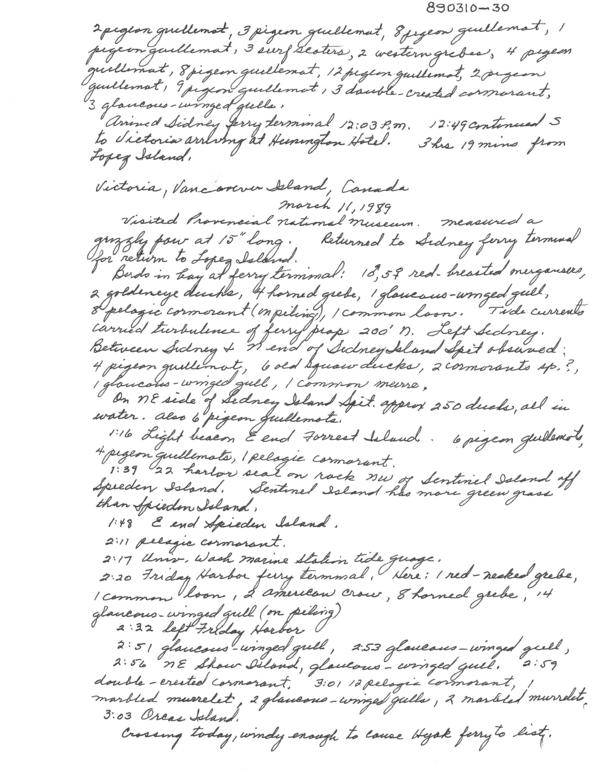 890310-30
2 pigeon guillemot, 3 pigeon guillemot, 8 pigeon guillemot, 1
pigeon guillemot, 3 surf scoters, 2 western grebes, 4 pigeon
guillemot, 8 pigeon guillemot, 12 pigeon guillemot, 2 pigeon
guillemot, 9 pigeon guillemot, 3 double-crested cormorant,
3 glaucous-winged gulls.
Arrived Sidney ferry terminal 12:03 P.m. 12:49 continued S
to Victoria arriving at Hunington Hotel. 3 hrs 19 mins from
Lopez Island.
Victoria, Vancouver Island, Canada
March 11, 1989
Visited Provencial National Museum. measured a
grizzly paw at 15" long. Returned to Sidney ferry terminal
for return to Lopez Island.
Birds in bay at ferry terminal: 1♂, 5♀ red-breasted mergansers,
2 goldeneye ducks, 4 horned grebe, 1 glaucous-winged gull,
8 pelagic cormorant (on piling), 1 common loon. Tide currents
carried turbulence of ferry prop 200' N. Left Sidney.
Between Sidney & N end of Sidney Island Spit observed:
4 pigeon guillemot, 6 old squaw ducks, 2 cormorants sp.?,
1 glaucous-winged gull, 1 common murre.
On NE side of Sidney Island Spit approx 250 ducks, all in
water. Also 6 pigeon guillemots.
1:16 Light beacon E end Forrest Island. 6 pigeon guillemots,
4 pigeon guillemots, 1 pelagic cormorant.
1:39 22 harbor seal on rock NW of Sentinel Island off
Spieden Island. Sentinel Island has more green grass
than Spieden Island.
1:48 E end Spieden Island.
2:11 pelagic cormorant.
2:17 Univ. Wash marine station tide guage.
2:20 Friday Harbor ferry terminal. Here: 1 red-necked grebe,
1 common loon, 2 american crow, 8 horned grebe, 14
glaucous-winged gull (on piling)
2:32 left Friday Harbor
2:51 glaucous-winged gull, 2:53 glaucous-winged gull,
2:56 NE Shaw Island, glaucous-winged gull. 2:59
double-crested cormorant. 3:01 12 pelagic cormorant, 1
marbled murrelet, 2 glaucous-winged gulls, 2 marbled murrelet.
3:03 Orcas Island.
Crossing today, windy enough to cause Hyak ferry to list.